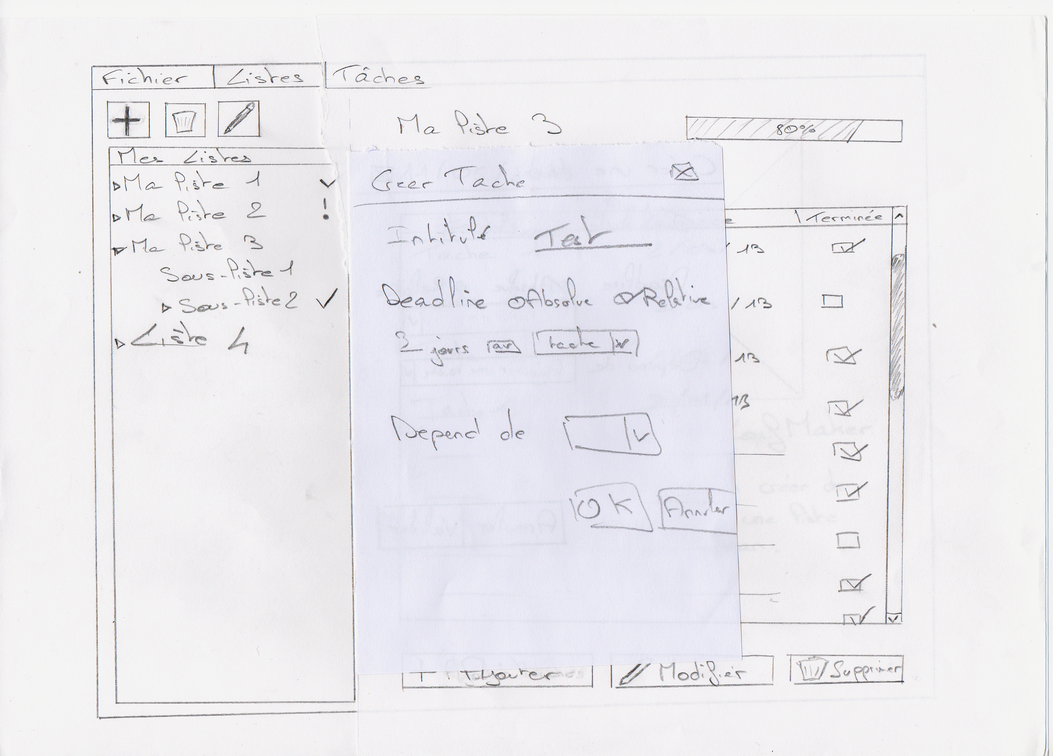 Fichier Listes Tâches
Ma liste 3 80%
Mes Listes
Ma liste 1
Ma liste 2 !
Ma liste 3
Sous-liste 1
Sous-liste 2
Liste 4
Creer Tache
Intitulé Test
Deadline Absolue Relative
2 jours av tache
Depend de
OK Annuler
Terminée
/ 13
/ 13
13
13
+ Ajouter Modifier Supprimer